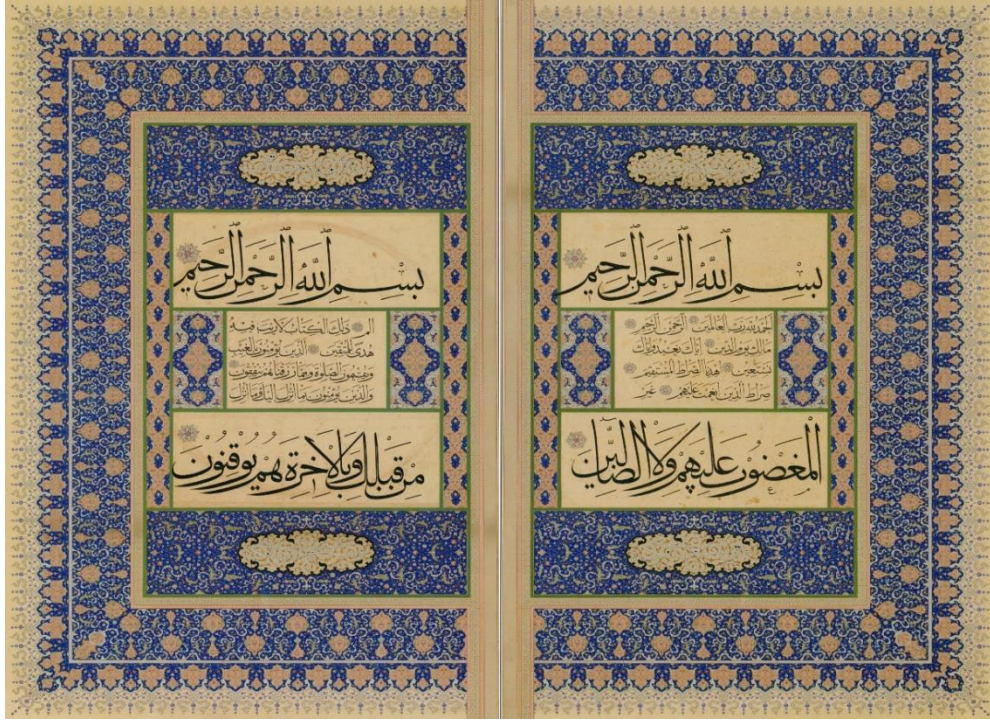 بِسْمِ اللّٰهِ الرَّحْمٰنِ الرَّحِيمِ
الحمد لله رب العالمين الرحمن الرحيم
مالك يوم الدين إياك نعبد وإياك
نستعين اهدنا الصراط المستقيم
صراط الذين أنعمت عليهم غير
المغضوب عليهم ولا الضالين
بِسْمِ اللّٰهِ الرَّحْمٰنِ الرَّحِيمِ
الم ذلك الكتاب لا ريب فيه
هدى للمتقين الذين يؤمنون بالغيب
ويقيمون الصلوة ومما رزقناهم ينفقون
والذين يؤمنون بما أنزل إليك وما أنزل
من قبلك وبالآخرة هم يوقنون